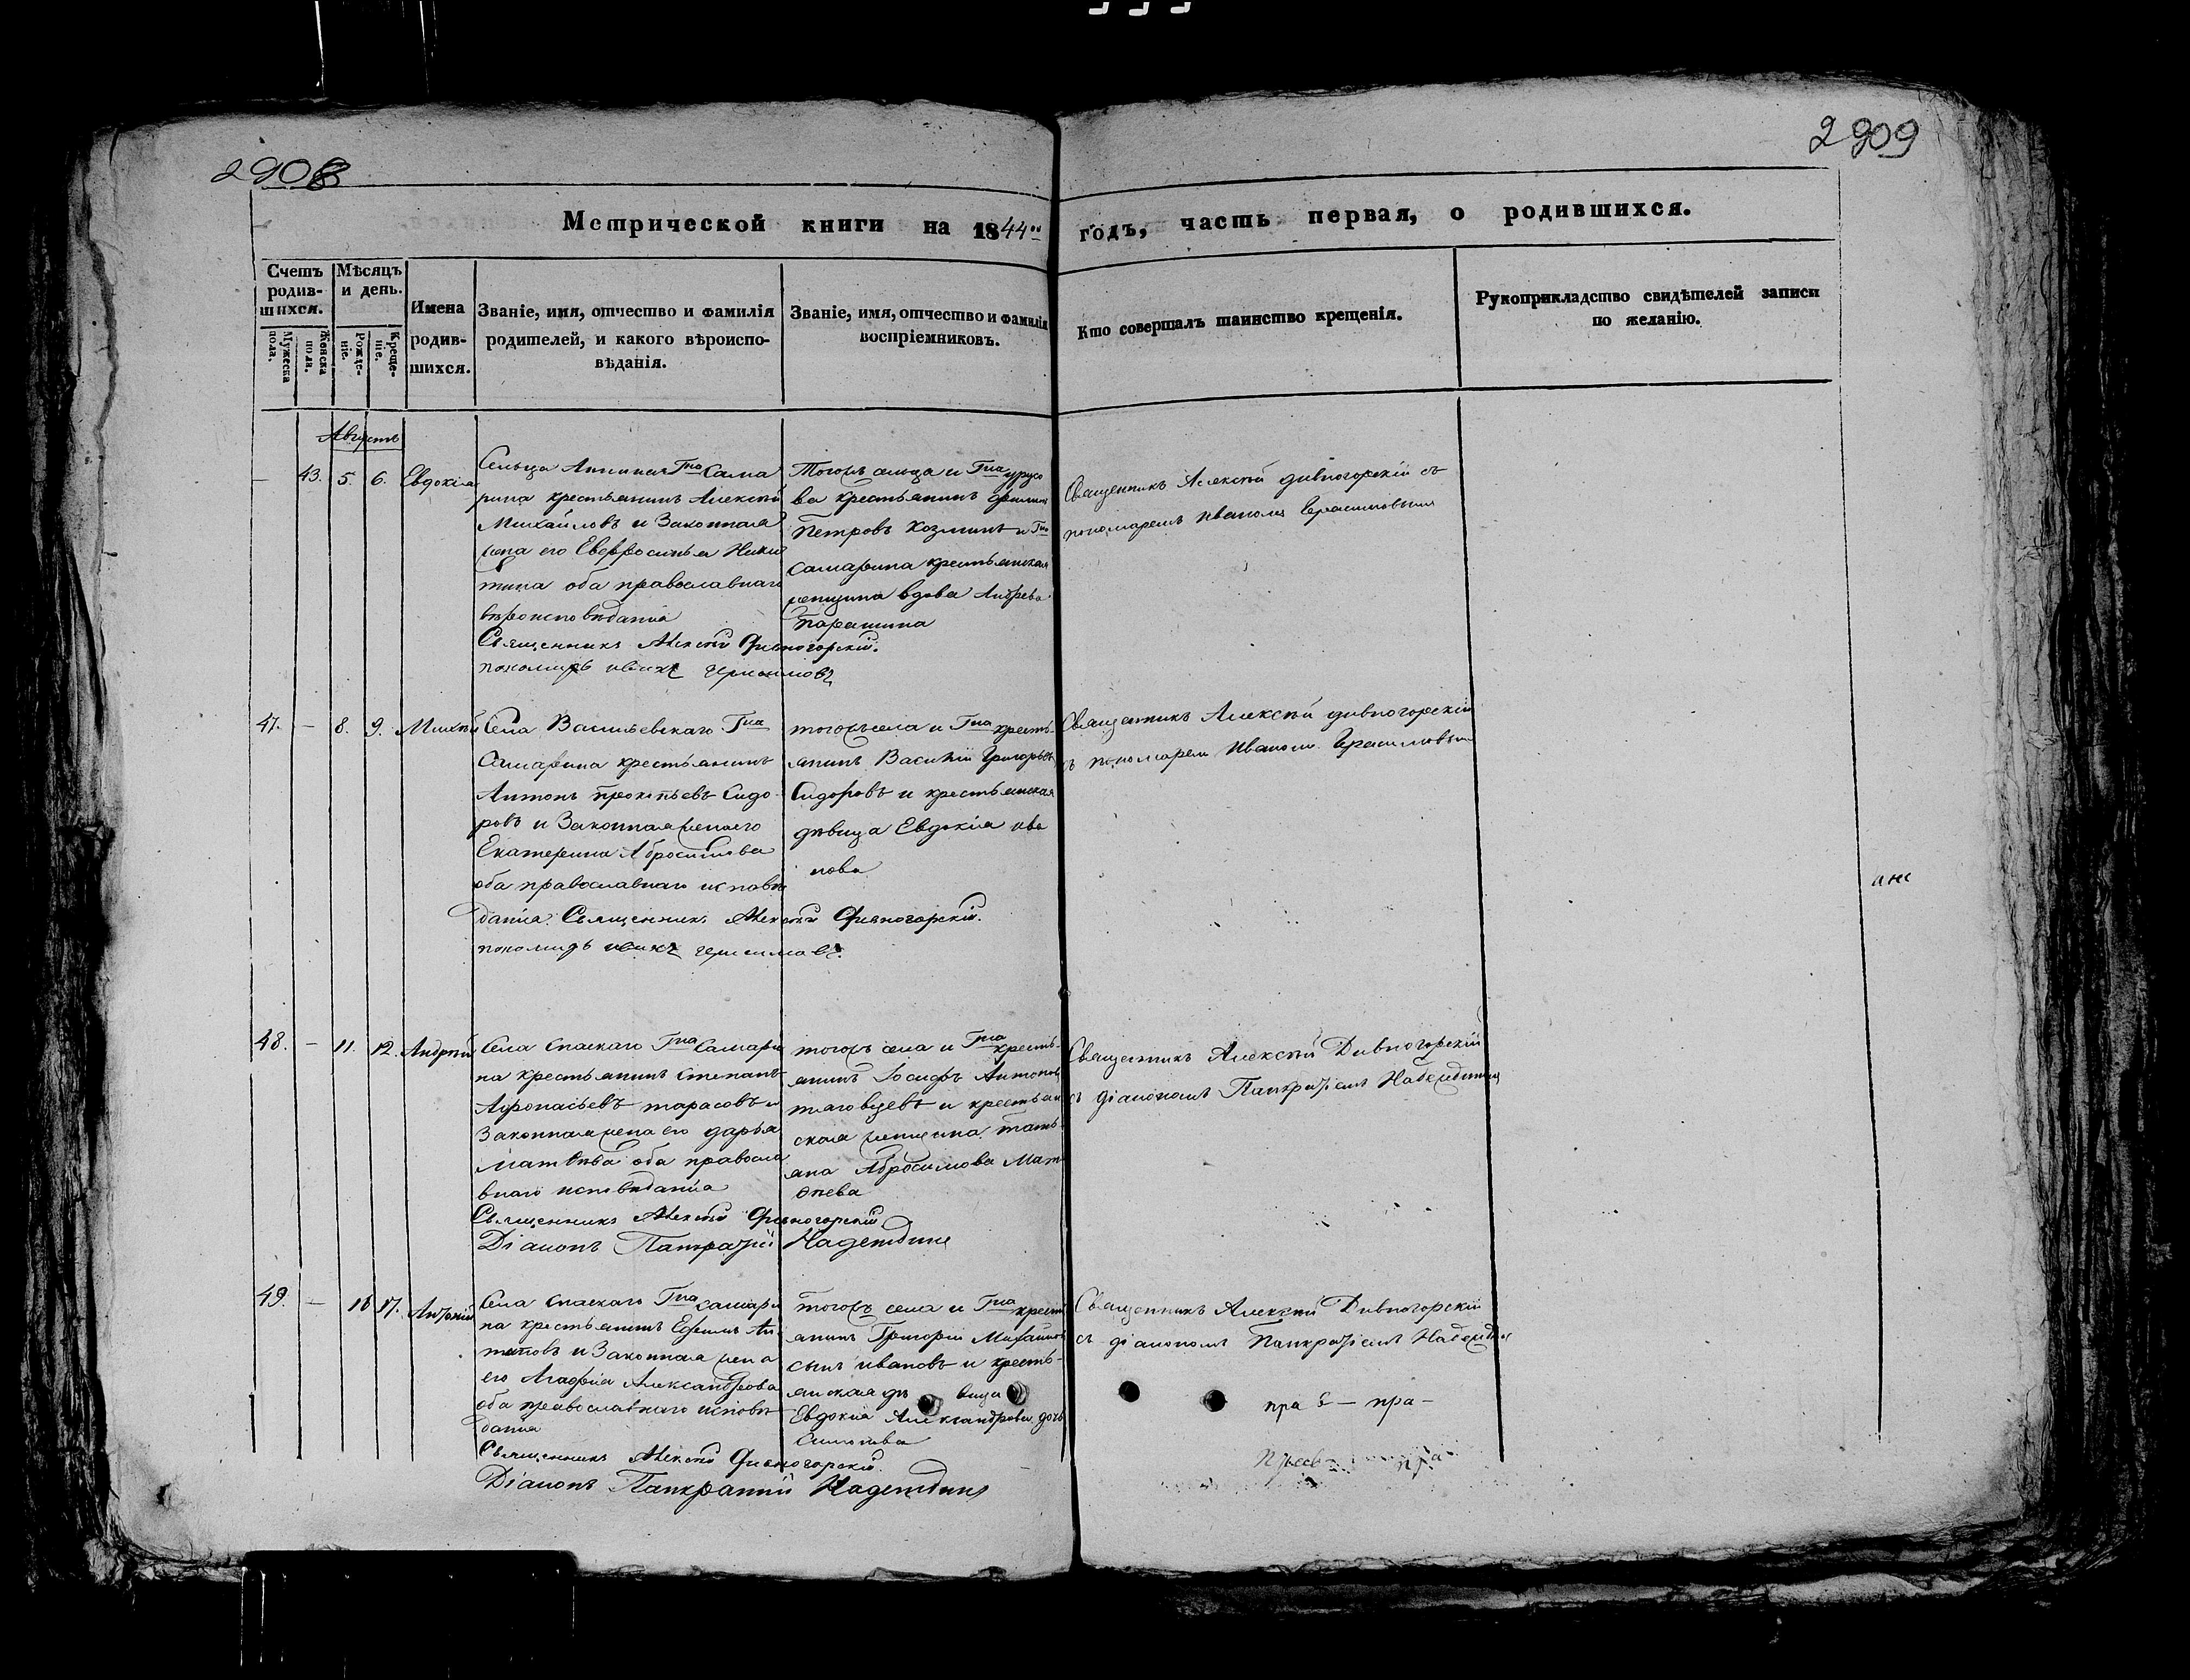 2908
2909
Метрической книги на 1844 годъ, часть первая, о родившихся.
Счетъ родив-шихся.
Мужеска пола.
Женска пола.
Мѣсяцъ и день.
Рожде-ніе.
Креще-ніе.
Имена родив-шихся.
Званіе, имя, отчество и фамилія родителей, и какого вѣроиспо-вѣданія.
Званіе, имя, отчество и фамилія воспріемниковъ.
Кто совершалъ таинство крещенія.
Рукоприкладство свидѣтелей записи по желанію.
Августъ
— 43. 5. 6. Евдокіа
Сельца Гна Сама
рина крестьянинъ Алексѣй
Михайловъ и Законная
жена его Евфросинья Ники
тина оба православнаго
вѣроисповѣданіа
Священникъ Алексѣй Дивногорскій.
пономарь иванъ герасимовъ
Тогожъ сельца и Гна урусо
ва крестьянинъ
Петровъ Козминъ и Гна
самарина крестьянская
женщина вдова Андрева
Священникъ Алексѣй дивногорскій съ
пономаремъ иваномъ Герасимовымъ
47. — 8. 9. Михаилъ
Села Васильевскаго Гна
Самарина крестьянинъ
Антонъ прокпьевъ Сидо
ровъ и Законная жена его
Екатерина Абросимова
оба православнаго исповѣ
даніа. Священникъ Алексѣй Дивногорскій.
пономарь иванъ герасимовъ.
тогожъ села и Гна кресть-
янинъ Василій Григорьевъ
Сидоровъ и крестьянская
дѣвица Евдокіа ива
нова
Священникъ Алексѣй дивногорскій
съ пономаремъ Иваномъ Герасимовымъ
48. — 11. 12. Андрѣй
Села спаскаго Гна Самари
на крестьянинъ степанъ
Афонасьевъ тарасовъ и
Законная жена его дарья
Матвѣва оба правосла
внаго исповѣданіа
Священникъ Алексѣй Дивногорскій
Діаконъ Панкратій Надеждинъ
тогожъ села и Гна кресть-
янинъ Іосифъ Антоновъ
и крестьян
ская женщина тать
яна Абросимова Мат
ѳнева
Священникъ Алексѣй Дивногорскій
съ діакономъ Панкратіемъ Надеждинымъ
49. — 16 17. Андрѣй
Села спаскаго Гна самари
на крестьянинъ Ефимъ Ан
типовъ и Законная жена
его Агафіа Александрова
оба православнаго исповѣ
даніа
Священникъ Алексѣй Дивногорскій.
Діаконъ Панкратій Надеждинъ
тогожъ села и Гна крестъ
янинъ Григорій Михайловъ
сынъ ивановъ и кресть-
янская дѣвица
Евдокіа Александрова дочь
Священникъ Алексѣй Дивногорскій
съ діакономъ Панкратіемъ Надеждинымъ